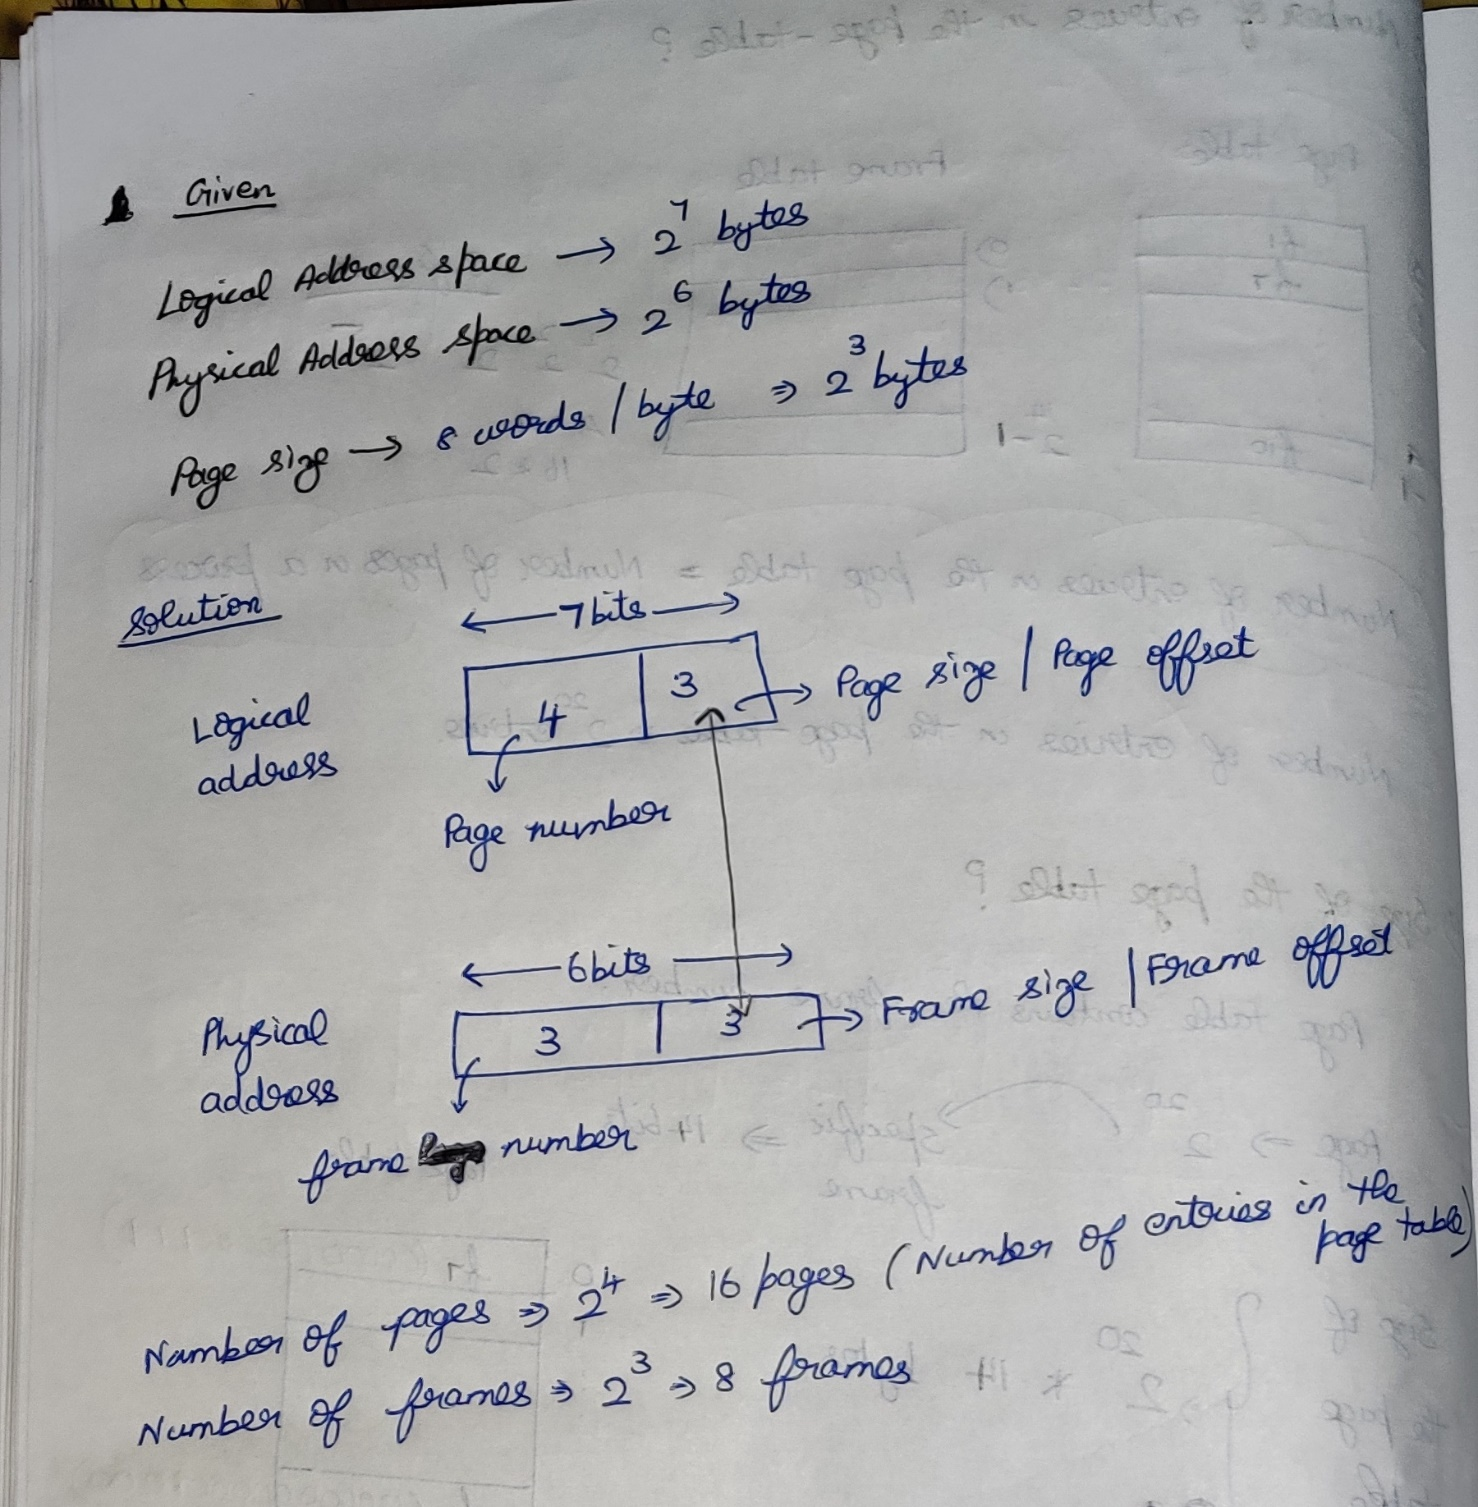 Given
Logical Address space → 2^7 bytes
Physical Address space → 2^6 bytes
Page size → 8 words / byte ⇒ 2^3 bytes
Solution
← 7 bits →
Logical address
4 3 → Page size | Page offset
Page number
← 6 bits →
Physical address
3 3 → Frame size | Frame offset
frame number
Number of pages ⇒ 2^4 ⇒ 16 pages (Number of entries in the page table)
Number of frames ⇒ 2^3 ⇒ 8 frames